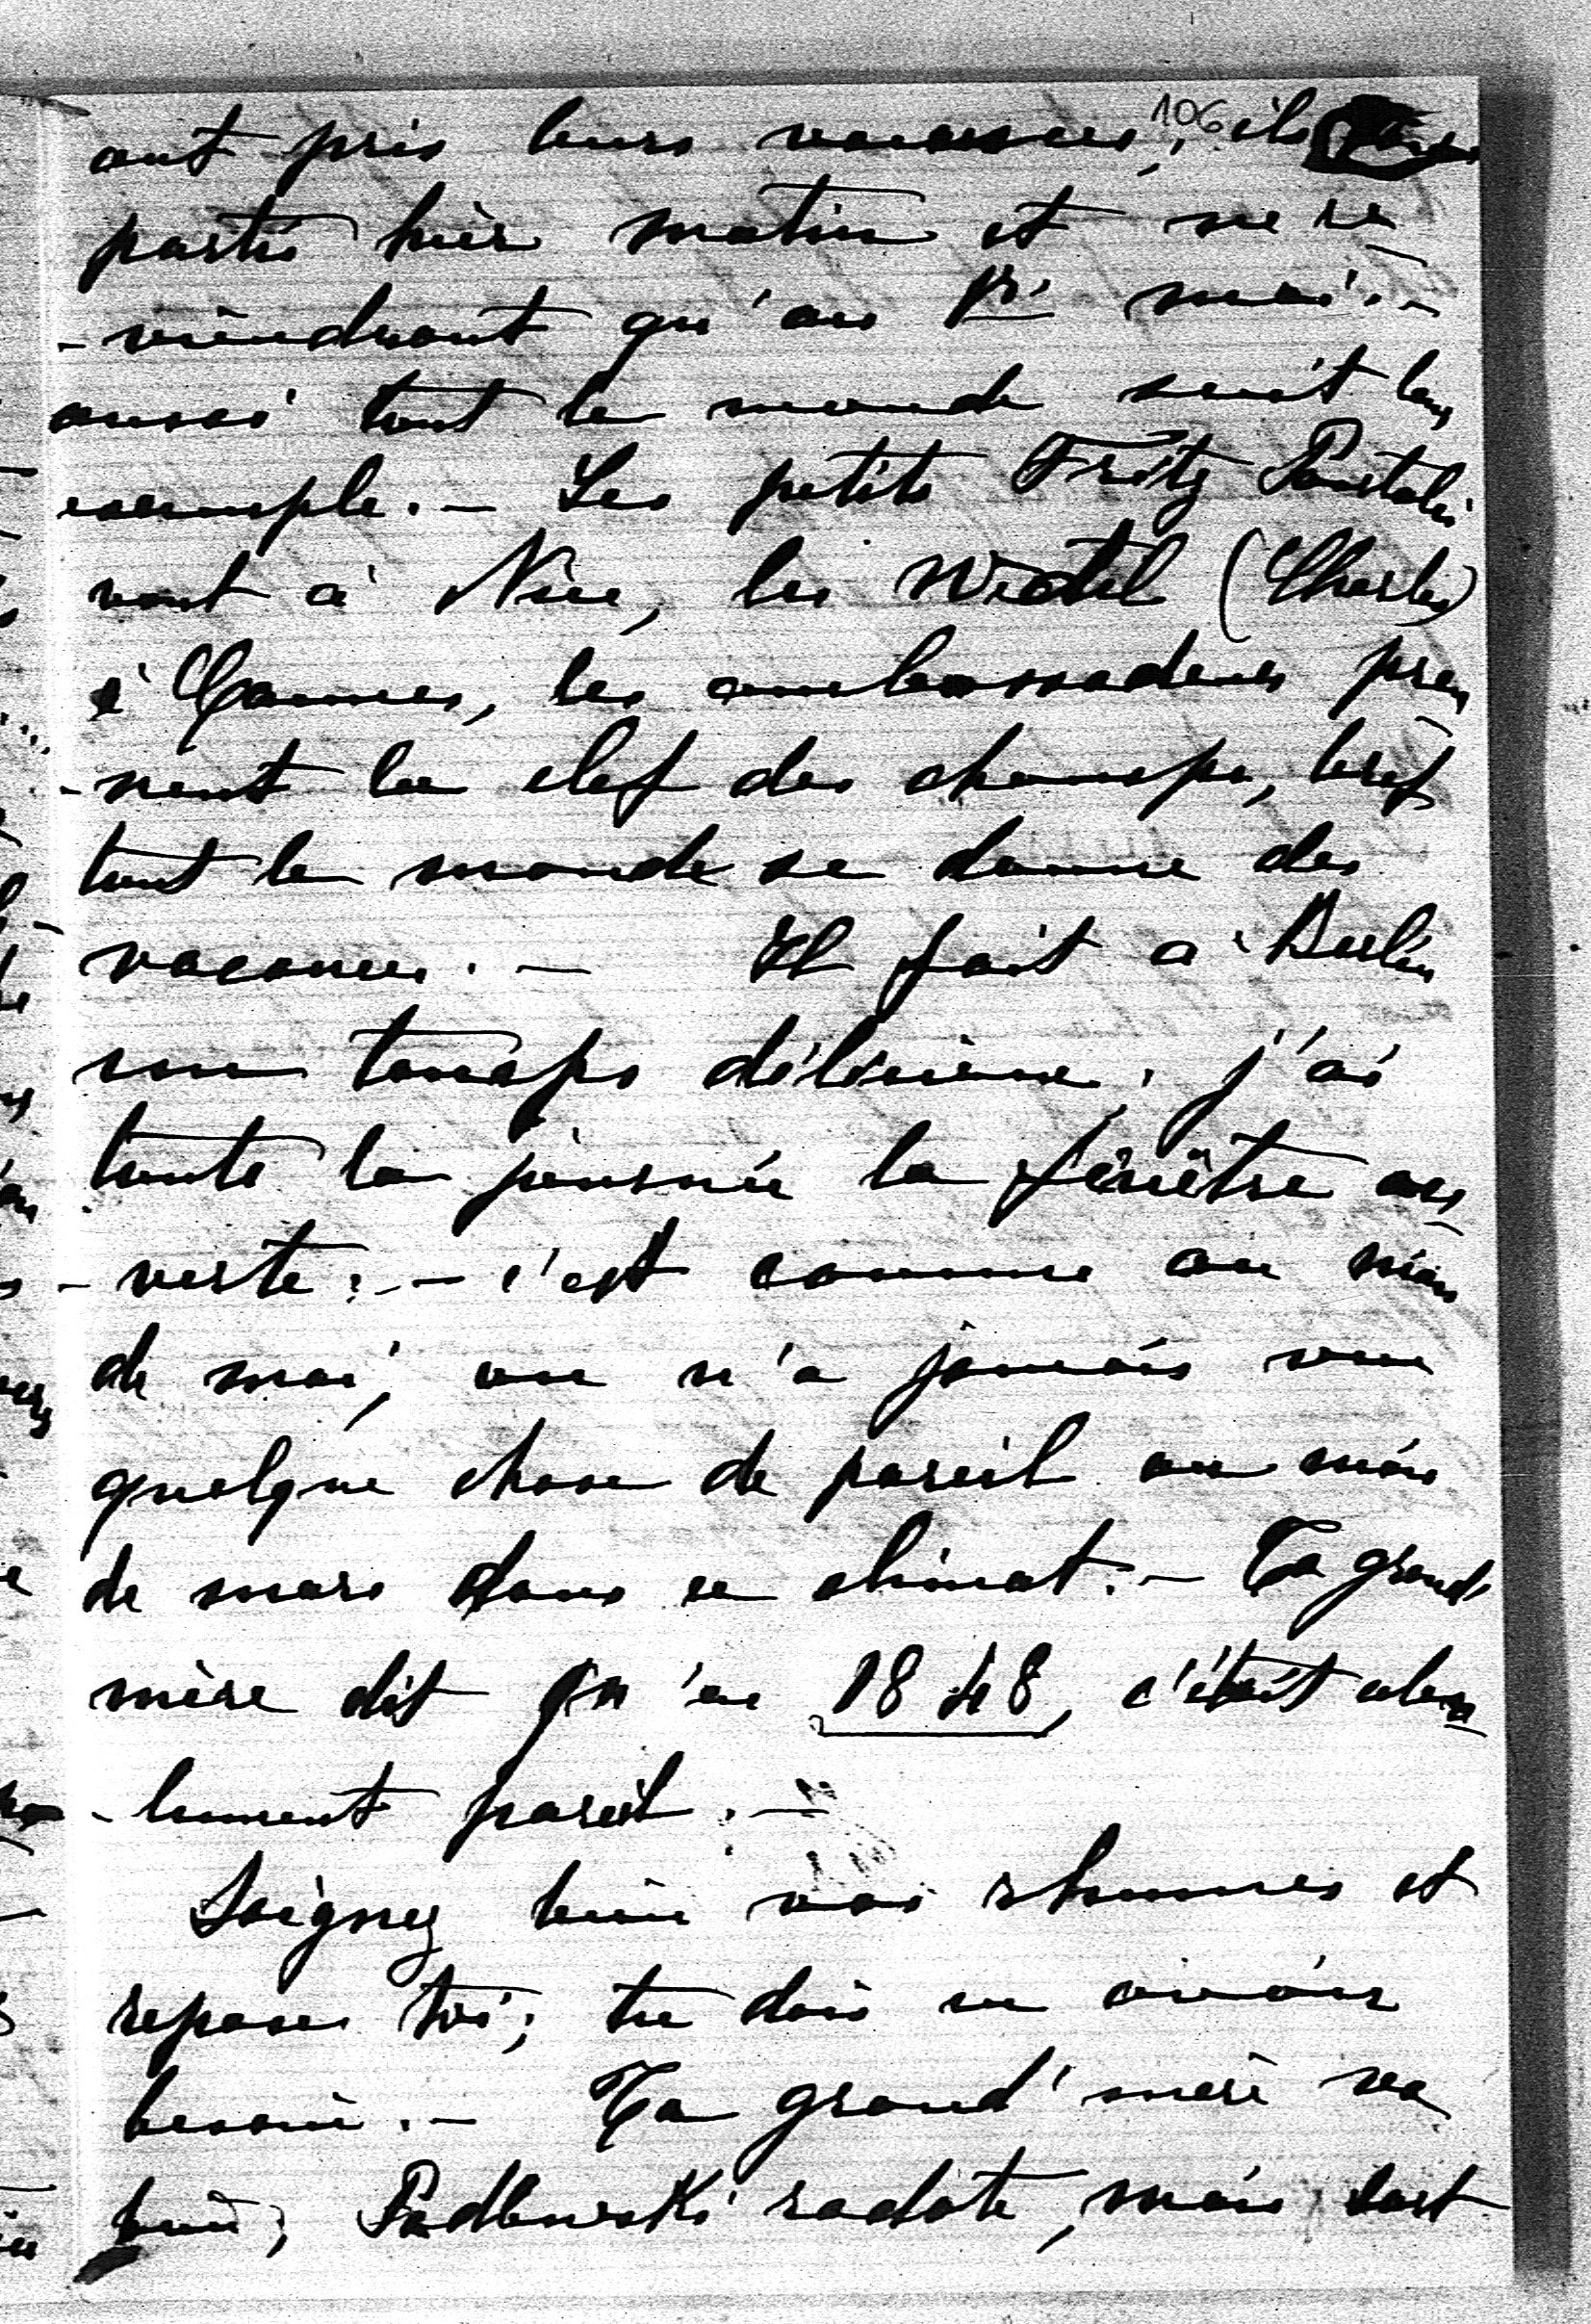 106
ont pris leurs vacances; ils sont
partis hier matin et ne re
-viendront qu'au 1r mai.-
aussi tout le monde suit leur
exemple.- Les petits Fritz Pourtalès
vont à Nice, les Wedel (Charles)
à Cannes, les ambassadeurs pren
-nent la clef des champs, bref
tout le monde se donne des
vacances.- Il fait à Berlin
un temps délicieux, j'ai
toute la journée la fenêtre ou
-verte;- c'est comme au mois
de mai, on n'a jamais vu
quelque chose de pareil au mois
de mars dans ce climat.- Ta grand'
mère dit qu'en 1848, c'était abso
-lument pareil.-
Soignez bien vos rhumes et
repose toi; tu dois en avoir
besoin.- Ta grand'mère va
bien, Podbewski radote, mais